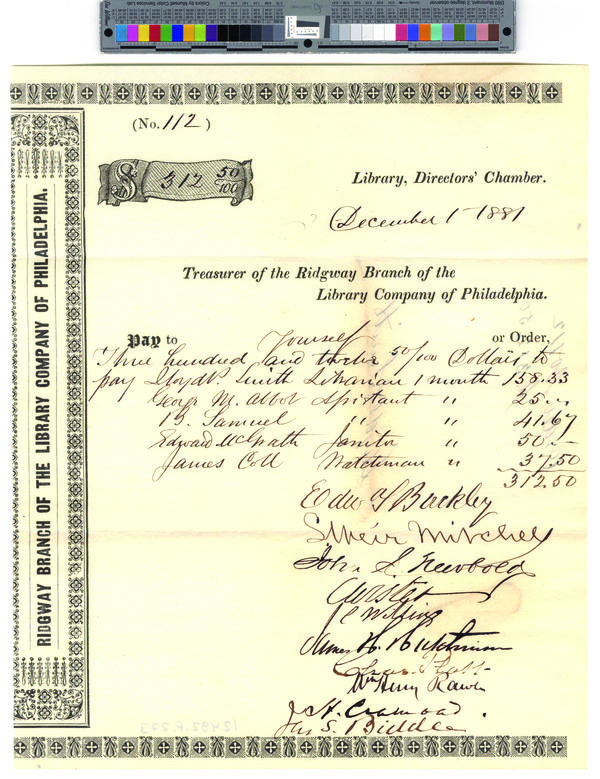 (No. 112)
$ 312 50/100
Library, Directors' Chamber.
December 1 1881
Treasurer of the Ridgway Branch of the
Library Company of Philadelphia.
Pay to Yourself or Order,
Three hundred and twelve 50/100 Dollars to
pay Lloyd P. Smith Librarian 1 month 158.33
George M. Abbot Assistant " 25.--
B. Samuel " " 41.67
Edward McGrath Janitor " 50.--
James Coll Watchman " 37.50
312.50
Edw Y Buckley
S Weir Mitchell
John S. Newbold
J C Willing
James H. Hutchinson
Wm Henry Rawle
Jas S. Biddle
RIDGWAY BRANCH OF THE LIBRARY COMPANY OF PHILADELPHIA.